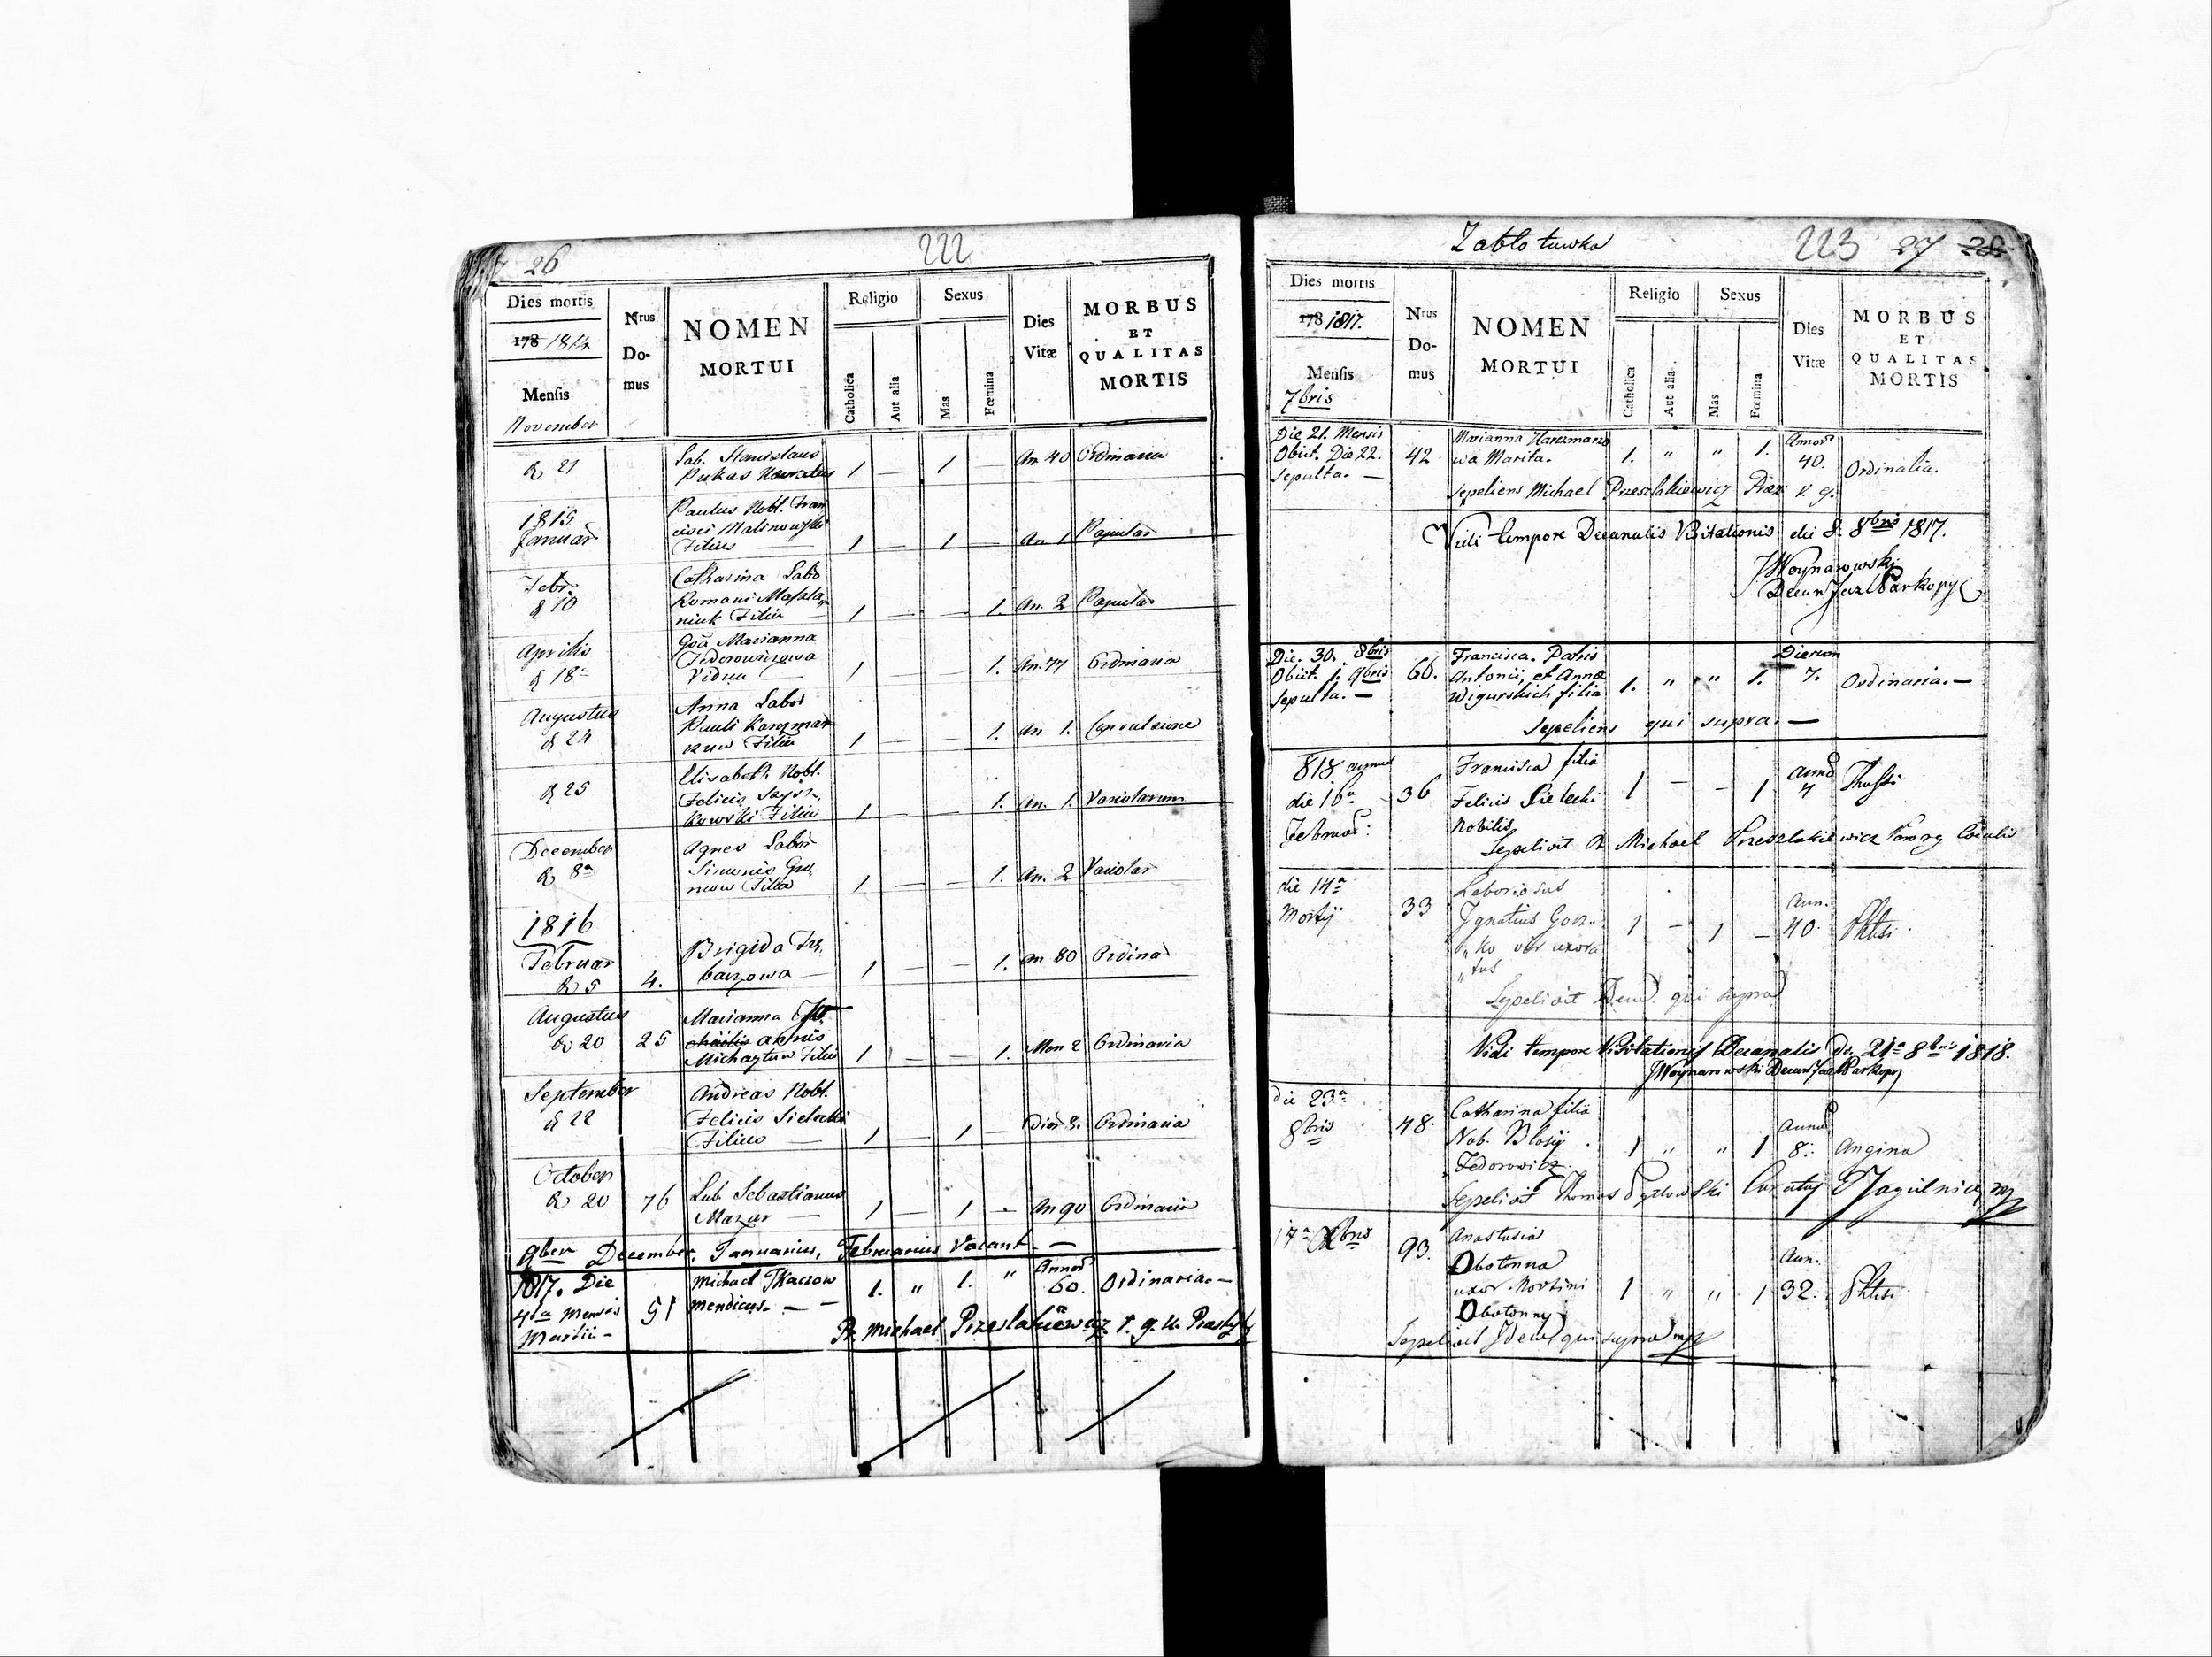 26 222
Dies mortis
178 1814
Mensis
November
Nrus Do-mus
NOMEN MORTUI
Religio
Catholica
Aut alia
Sexus
Mas
Fœmina
Dies Vitæ
MORBUS ET QUALITAS MORTIS
d 21 Lab. Stanislaus 1 — 1 — An 40 Ordinaria
Pukas
1815 Januar Paulus Nobl. Fran
cisci Malinowski
Filius — 1 — 1 — An 1
Febr. d 10 Catharina Labo
Romani
niuk Filia — 1 — — 1. An. 2
Aprilis d 18a Marianna
Fedorowiczowa
Vidua — 1 — — 1. An. 77 Ordinaria
Augustus d 24 Anna Labor
Pauli Karzmar
Filia 1 — — 1. An 1. Convulsione
d 25 Elisabeth Nobl.
Felicis
kowski Filia 1 — — 1. An. 1. Variolarum
December d 8a Agnes Labor
Simonis
Filia 1 — — 1. An. 2 Variolar
1816
Februar d 5 4. Brigida
barzowa — 1 — — 1. An 80 Ordina
Augustus d 20 25 Marianna
Michaytuw Filia 1 — — 1. Men 2 Ordinaria
September d 22 Andreas Nobl.
Felicis Sielecki
Filius — 1 — 1 — Dier 8. Ordinaria
October d 20 76 Lab Sebastianus
Mazur — 1 — 1 — An 90 Ordinaria
9ber December, Januarius, Februarius Vacant —
1817. Die
4ta Mensis
Martii — 51 Michael Tkaczow
mendicus. — 1. " 1. " Annor 60. Ordinaria. —
Pr. Michael Przeslakiewicz
Zablotuwka 223 27 28
Dies mortis
178 1817.
Mensis
7bris
Nrus Do-mus
NOMEN MORTUI
Religio
Catholica
Aut alia.
Sexus
Mas
Fœmina
Dies Vitæ
MORBUS ET QUALITAS MORTIS
Die 21. Mensis
Obiit. Die 22.
Sepulta. — 42 Marianna Karczmaro
wa Marita. 1. " " 1. Annor 40. Ordinalia.
Sepeliens Michael Przeszlakiewicz
Vidi tempore Decanalis Visitationis die 8. 8bris 1817.
JWoynarowski
Die. 30. 8bris
Obiit. 1. 9bris
Sepulta. — 60. Francisca. Patris
Antonii, et Annæ
Wigurskich filia 1. " " 1. Dierum 7. Ordinaria. —
Sepeliens qui supra. —
818 annus
die 16a
Februar: 36 Francisca filia
Felicis Sielecki
Nobilis 1 — — 1 Anno 7
Sepelivit Michael Przeszlakiewicz
die 14a
Martij 33 Laboriosus
Ignatius Gorz
„ ko vir uxora
„ tus 1 — 1 — Ann. 40. Phtisi.
Sepelivit Idem qui supra
Vidi tempore Visitationis Decanalis die 21a 8bris 1818.
JWoynarowski
die 23a
8bris 48. Catharina filia
Nob. Blasij
Fedorowicz 1 " " 1 Anno 8. Angina
Sepelivit Thomas Curatus Jagielnicy mp
17a Xbris 93. Anastasia
Obotonna
uxor Martini
Obotonny 1 " " 1 Ann. 32. Phtisi
Sepelivit Idem qui supra mp